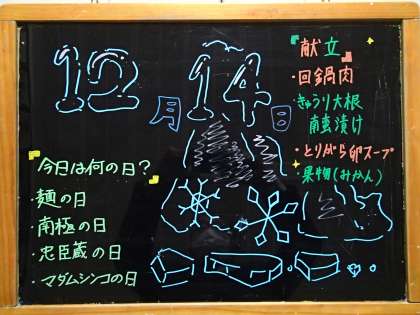 12月14日
『献立』
・回鍋肉
・きゅうり大根
南蛮漬け
・とりがら卵スープ
・果物(みかん)
『今日は何の日?』
・麺の日
・南極の日
・忠臣蔵の日
・マダムシンコの日